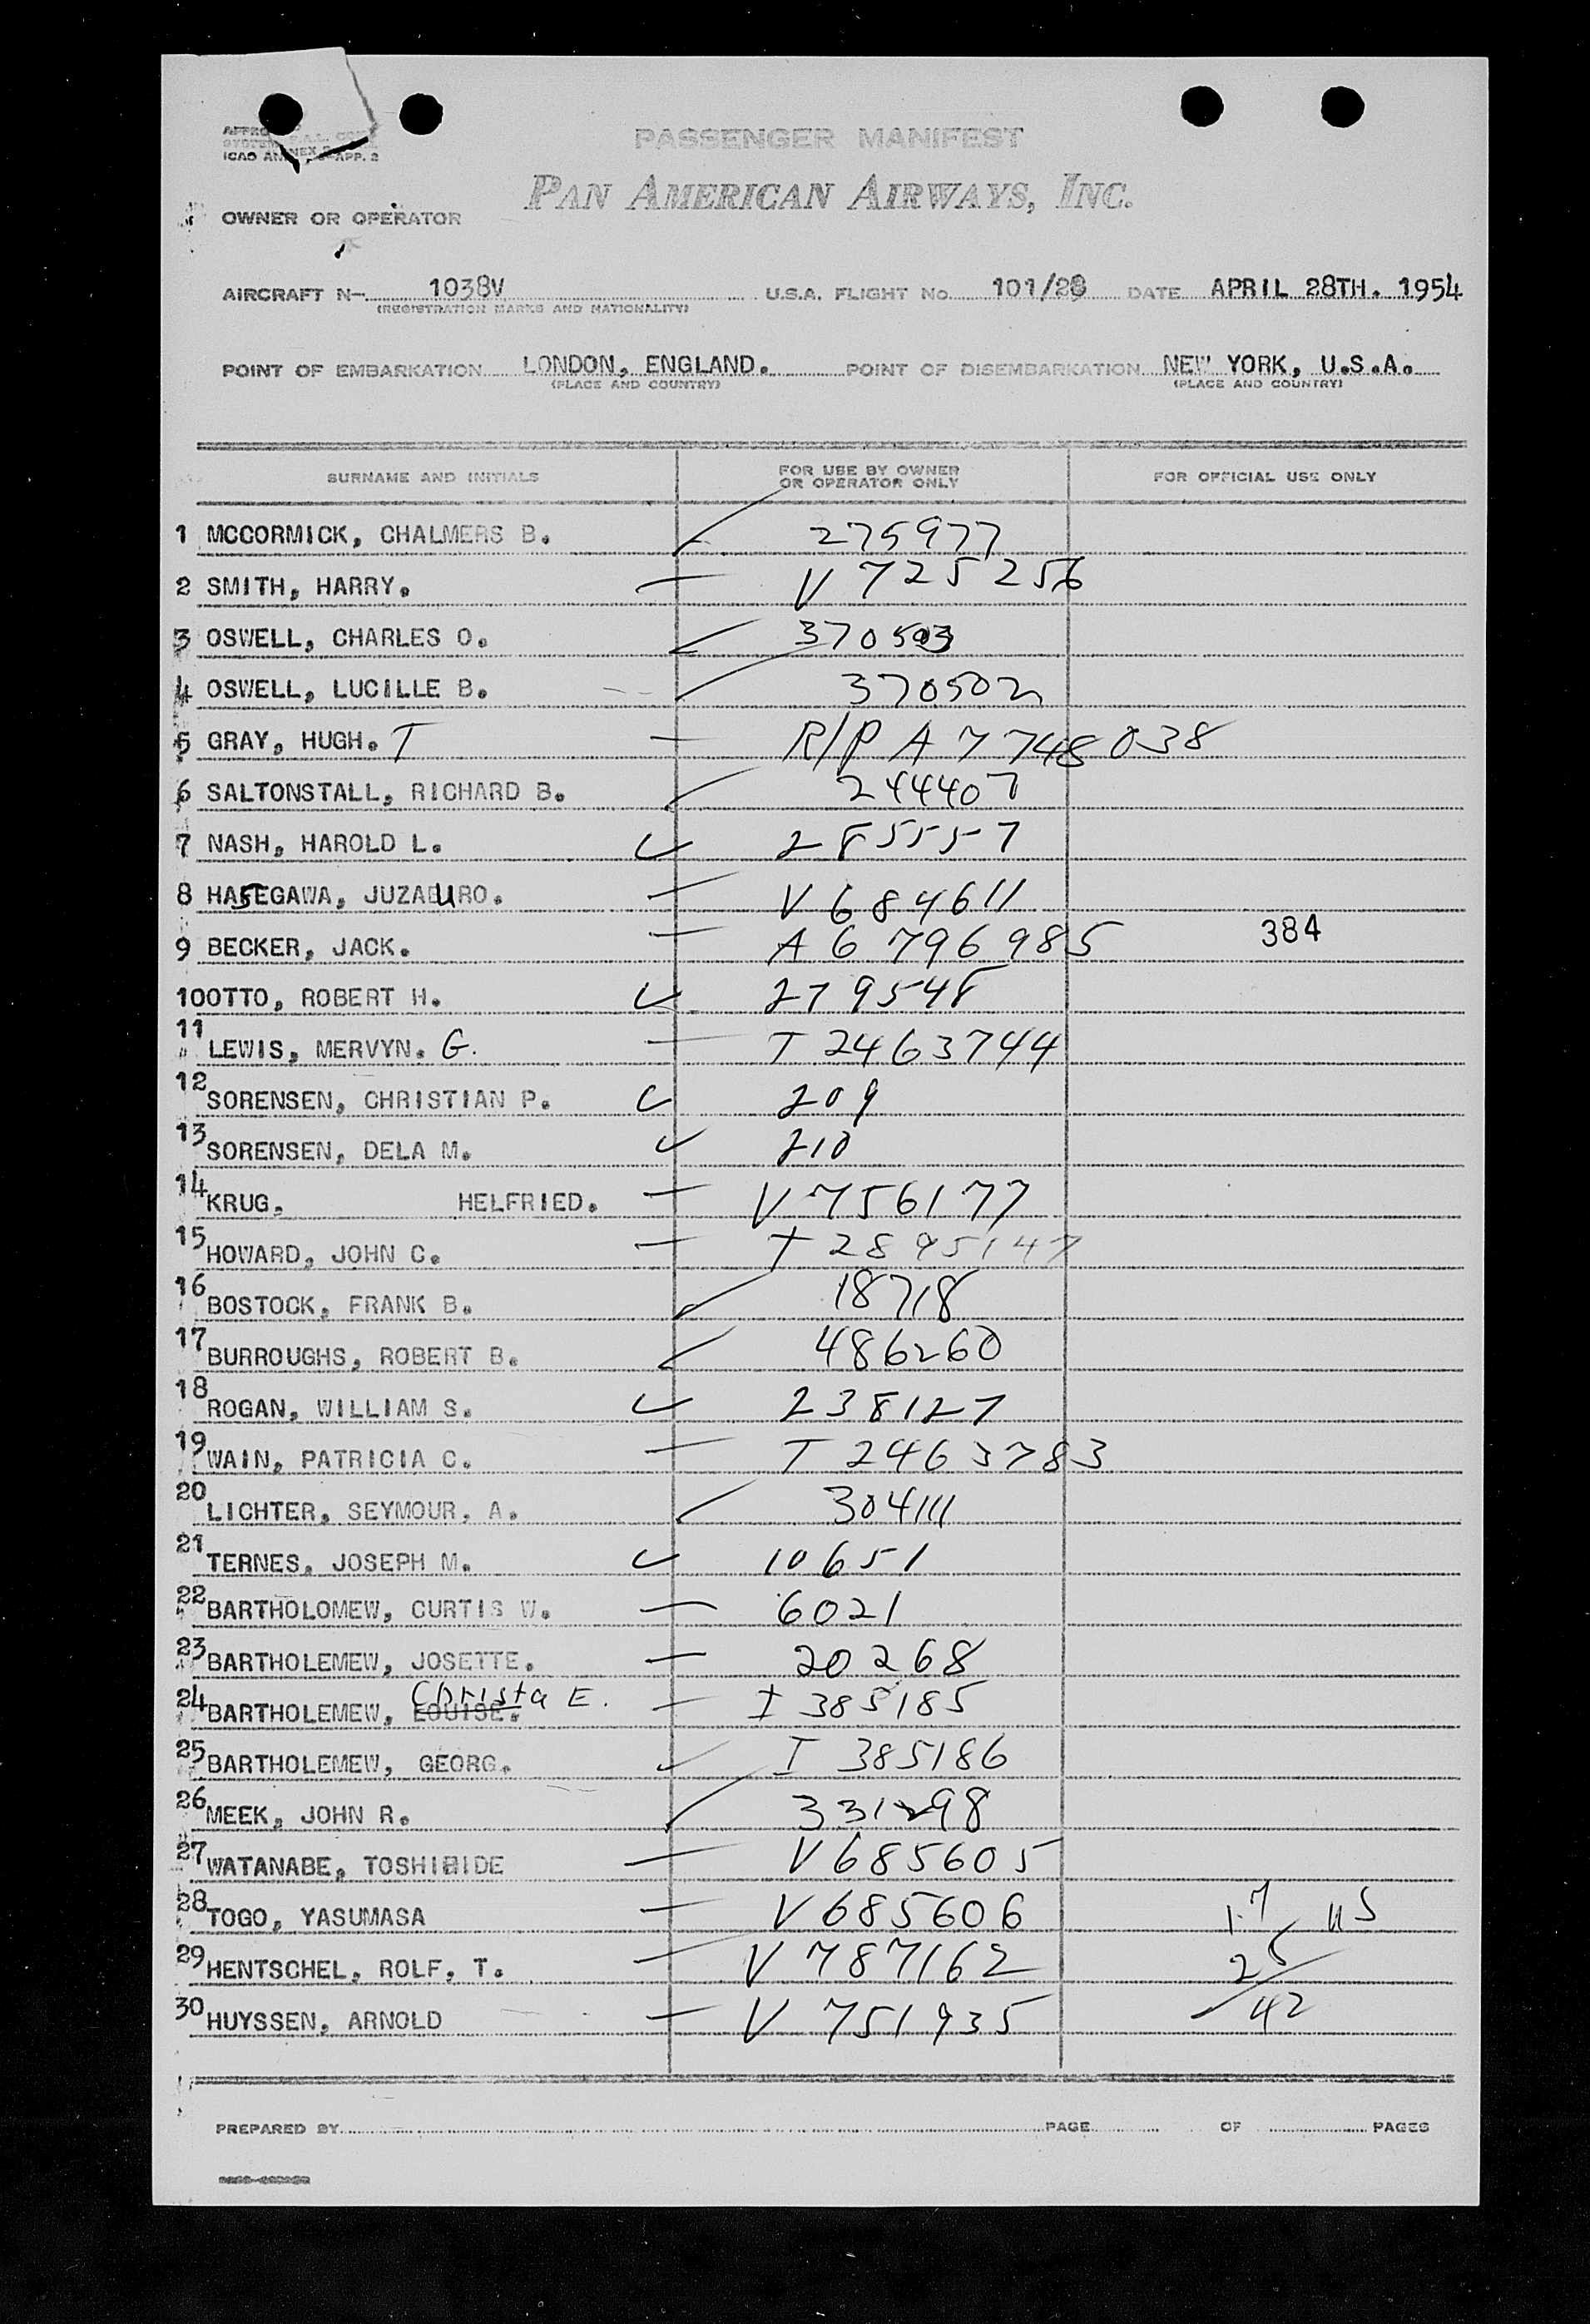 PASSENGER MANIFEST
ICAO ANNEX 9-APP. 2
PAN AMERICAN AIRWAYS, INC.
OWNER OR OPERATOR
AIRCRAFT N- 1038V U.S.A. FLIGHT No. 101/28 DATE APRIL 28TH. 1954
(REGISTRATION MARKS AND NATIONALITY)
POINT OF EMBARKATION LONDON, ENGLAND. POINT OF DISEMBARKATION NEW YORK, U.S.A.
(PLACE AND COUNTRY) (PLACE AND COUNTRY)
SURNAME AND INITIALS FOR USE BY OWNER OR OPERATOR ONLY FOR OFFICIAL USE ONLY
1 MCCORMICK, CHALMERS B. 275977
2 SMITH, HARRY. V 725256
3 OSWELL, CHARLES O. 370503
4 OSWELL, LUCILLE B. 370502
5 GRAY, HUGH. T R/P A 7748038
6 SALTONSTALL, RICHARD B. 244407
7 NASH, HAROLD L. 285557
8 HASEGAWA, JUZABURO. V 684611
9 BECKER, JACK. A 6 796 985 384
10 OTTO, ROBERT H. 279548
11 LEWIS, MERVYN. G. T 2463744
12 SORENSEN, CHRISTIAN P. 209
13 SORENSEN, DELA M. 210
14 KRUG, HELFRIED. V 756177
15 HOWARD, JOHN C. T 2895147
16 BOSTOCK, FRANK B. 18718
17 BURROUGHS, ROBERT B. 486260
18 ROGAN, WILLIAM S. 238127
19 WAIN, PATRICIA C. T 2463783
20 LICHTER, SEYMOUR, A. 304111
21 TERNES, JOSEPH M. 10651
22 BARTHOLOMEW, CURTIS W. 6021
23 BARTHOLEMEW, JOSETTE. 20268
24 BARTHOLEMEW, LOUISE. Christa E. I 385185
25 BARTHOLEMEW, GEORG. I 385186
26 MEEK, JOHN R. 331298
27 WATANABE, TOSHIHIDE V 685605
28 TOGO, YASUMASA V 685606 17 US
29 HENTSCHEL, ROLF, T. V 787162 25
30 HUYSSEN, ARNOLD V 751935 42
PREPARED BY PAGE OF PAGES